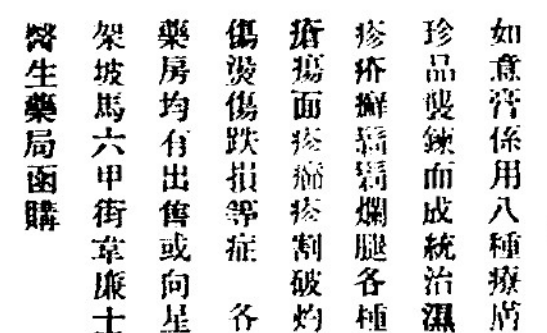 如意膏係用八種療膚
珍品製鍊而成統治濕
疹疥癬 爛腿各種
瘡瘍面疹 疹割破灼
傷燙傷跌損等症 各
藥房均有出售或向星
架坡馬六甲街韋廉士
醫生藥局函購